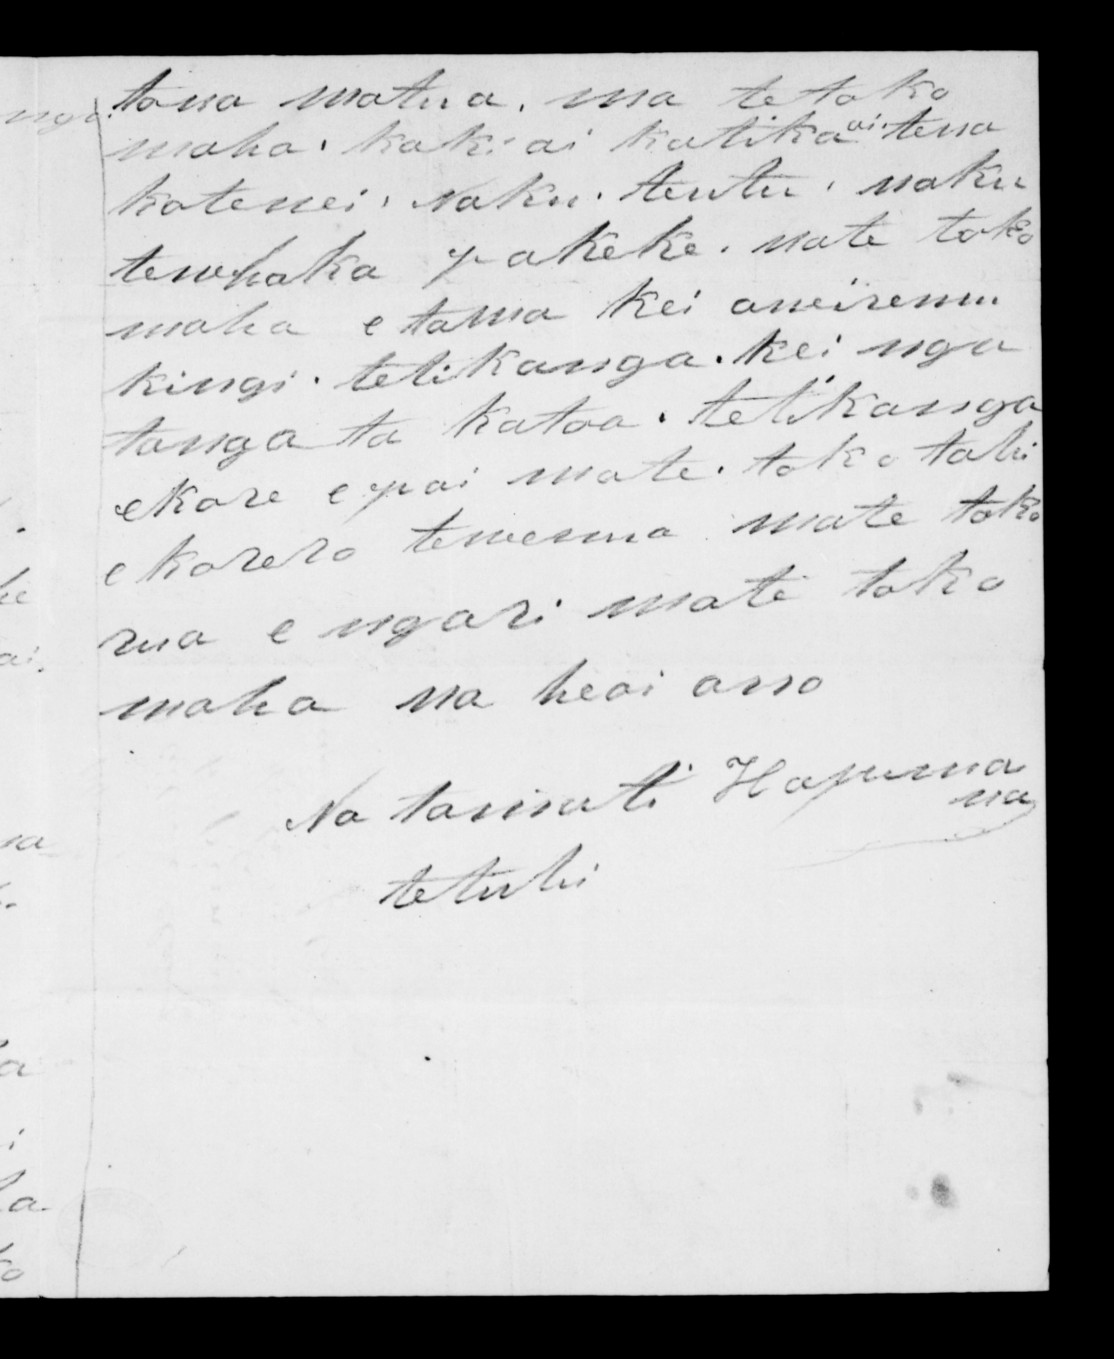 tana matua. ma te toko
maha. kaki ai katika ai tena
katenei. Naku. tentu. naku
tewhaka pakeke. mate toko
maha e tama kei aneirenu
kingi. tetikanga. kei nga
tanga ta katoa. tetikanga
ekore e pai mate. toko tahi
e korero tewenua mate toko
rua e ngari mate toko
maha na heoi ano
Na Hapurona
na
tetuhi